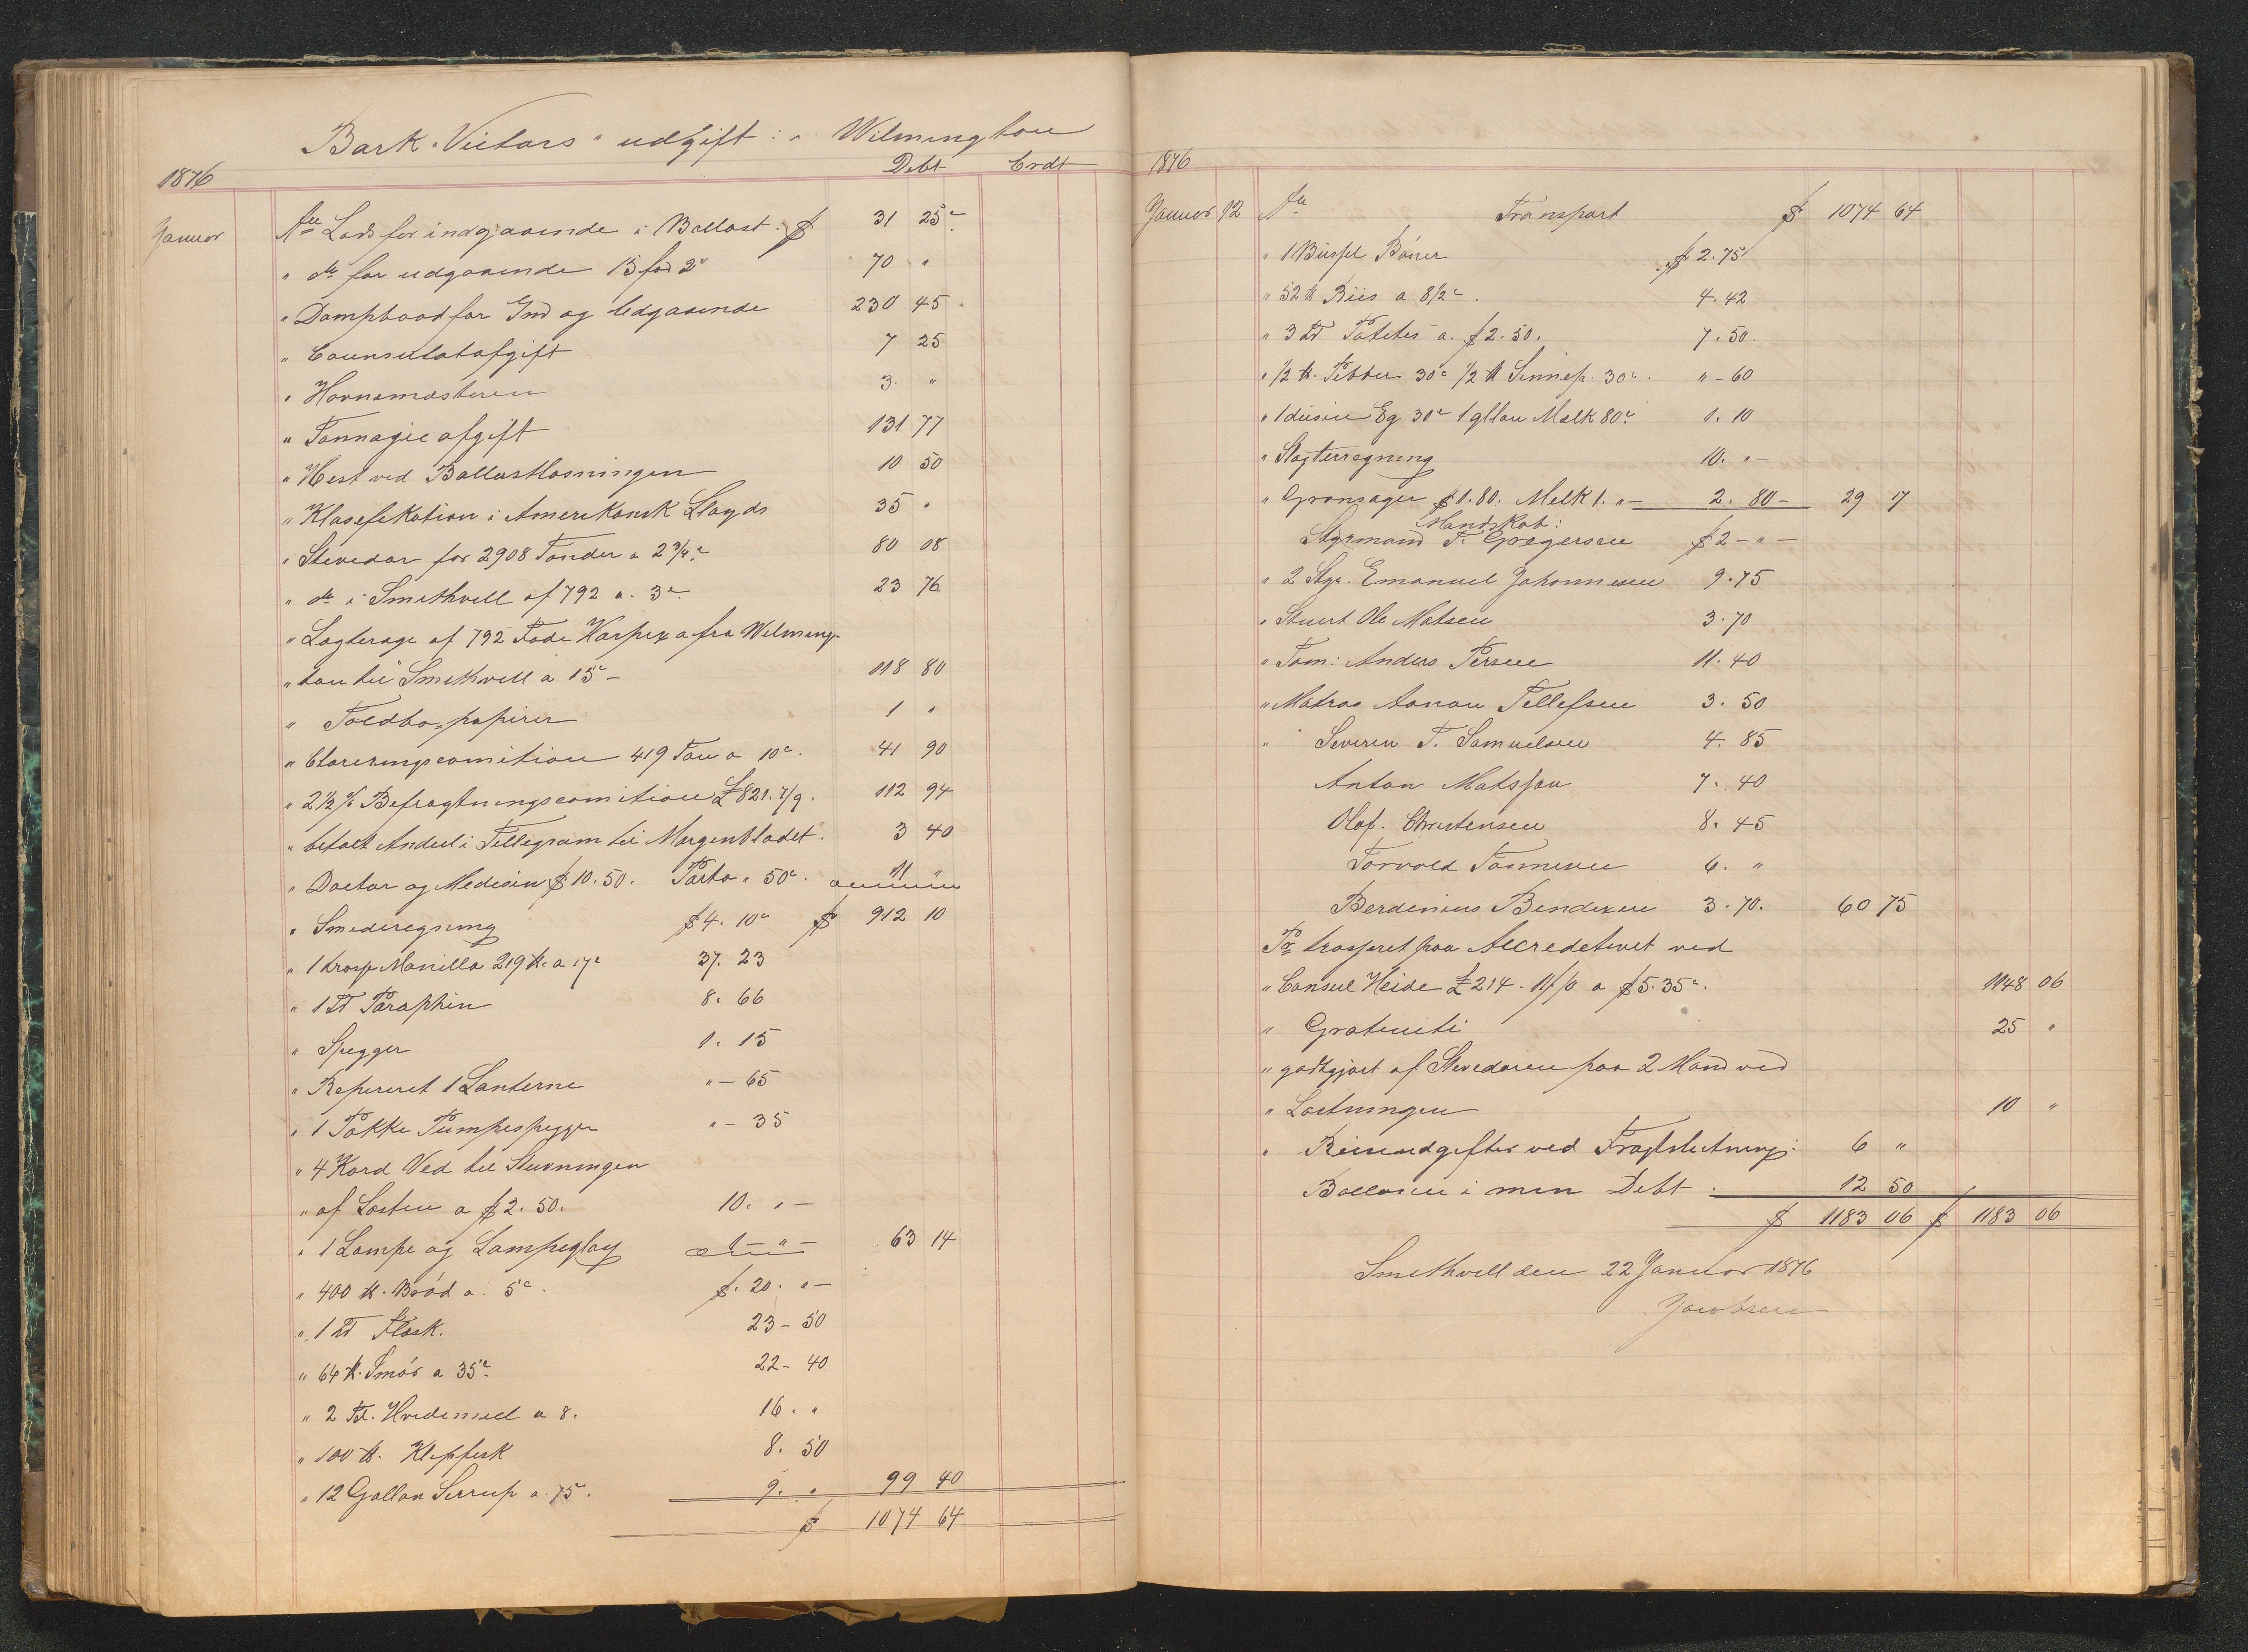 Bark "Victors" udgift i Wilmington
1876 Debt Crdt
Januar An Lods for indgaaende i Ballast $ 31 25c
" do for udgaaende 15 fod 2" 70 "
" Dampbaad for Ind og Udgaaende 230 45
" Counsulatafgift 7 25
" Havnemasteren 3. "
" Tonnagie afgift 131 77
" Hest ved Ballastlosningen 10 50
" Klasefikation i Amerikansk Lloyds 35 "
" Stevedor for 2908 Tønder a 2 3/4c 80 08
" do i Smithvell af 792 a. 3c 23 76
" Lagterage af 792 Fade Harpex a fra Wilming-
" ton til Smithvell a 15c – 118 80
" Toldbo, papirer 1 "
" Clareringscomition 419 Ton a 10c. 41 90
" 2 1/2 % Befragtningscomition £821. 7/9. 112 94
" betalt Andeel i Tellegram til Morgenbladet. 3 40
" Doctor og Medisin $10.50. Porto " 50c. 11 "
" Smederegning $4. 10c $ 912 10
" 1 Trosse Manilla 219 ℔. a 17c 37. 23
" 1 Fd Paraphin 8. 66
" Spegger 1. 15
" Repereret 1 Lanterne " – 65
" 1 Pakke Pumpespegger " – 35
" 4 Kord Ved til Stuvningen
" af Lasten a $2. 50. 10. " –
" 1 Lampe og Lampeglas 1 – " – 63 14
" 400 ℔. Brød a. 5c. $. 20. " –
" 1 Fd Flæsk. 23 – 50
" 64 ℔. Smør a 35c 22 – 40
" 2 Fd. Hvedemeel a 8. 16. "
" 100 ℔. Klepfesk 8. 50
" 12 Gallon Serrup a. 75. 9. " 99 40
$ 1074 64
1876
Januar 12 An Transport $ 1074 64
" 1 Busjel Bøner $ 2.75
" 52 ℔ Riis a 8 1/2c. 4. 42
" 3 Fd Potetes a. $2. 50. 7. 50.
" 1/2 ℔. Pebber 30c 1/2 ℔ Sennep. 30c. " – 60
" 1 dusin Eg 30c 1 gllon Mælk 80c. 1. 10
" Slagterregning 10. " –
" Grønsager $1. 80. Melk 1. " – 2. 80 – 29 17
Mandskab:
Styrmand T. Gregersen $ 2 – " –
" 2 Styr. Emanuel Johannesen 9. 75
" Stuert Ole Matsen 3. 70
" Tøm: Anders Persen 11. 40
" Matros Aanon Tellefsen 3. 50
" Severin T. Samuelsen 4. 85
Anton Matsson 7. 40
Olaf. Christensen 8. 45
Torvald Tønnesen 6. "
Berdinius Bendixen 3. 70. 60 75
Pr trasseret paa Accredetivet ved
" Consul Heide £214. 11/10 a $5. 35c. 1148 06
" Gratuiti 25 "
" godtgjort af Stevedoren paa 2 Mand ved
" Lastningen 10 "
" Reiseudgifter ved Fragtslutning: 6 "
Ballansen i min Debt. 12 50
$ 1183 06 $ 1183 06
Smithvell den 22 Januar 1876
Jacobsen